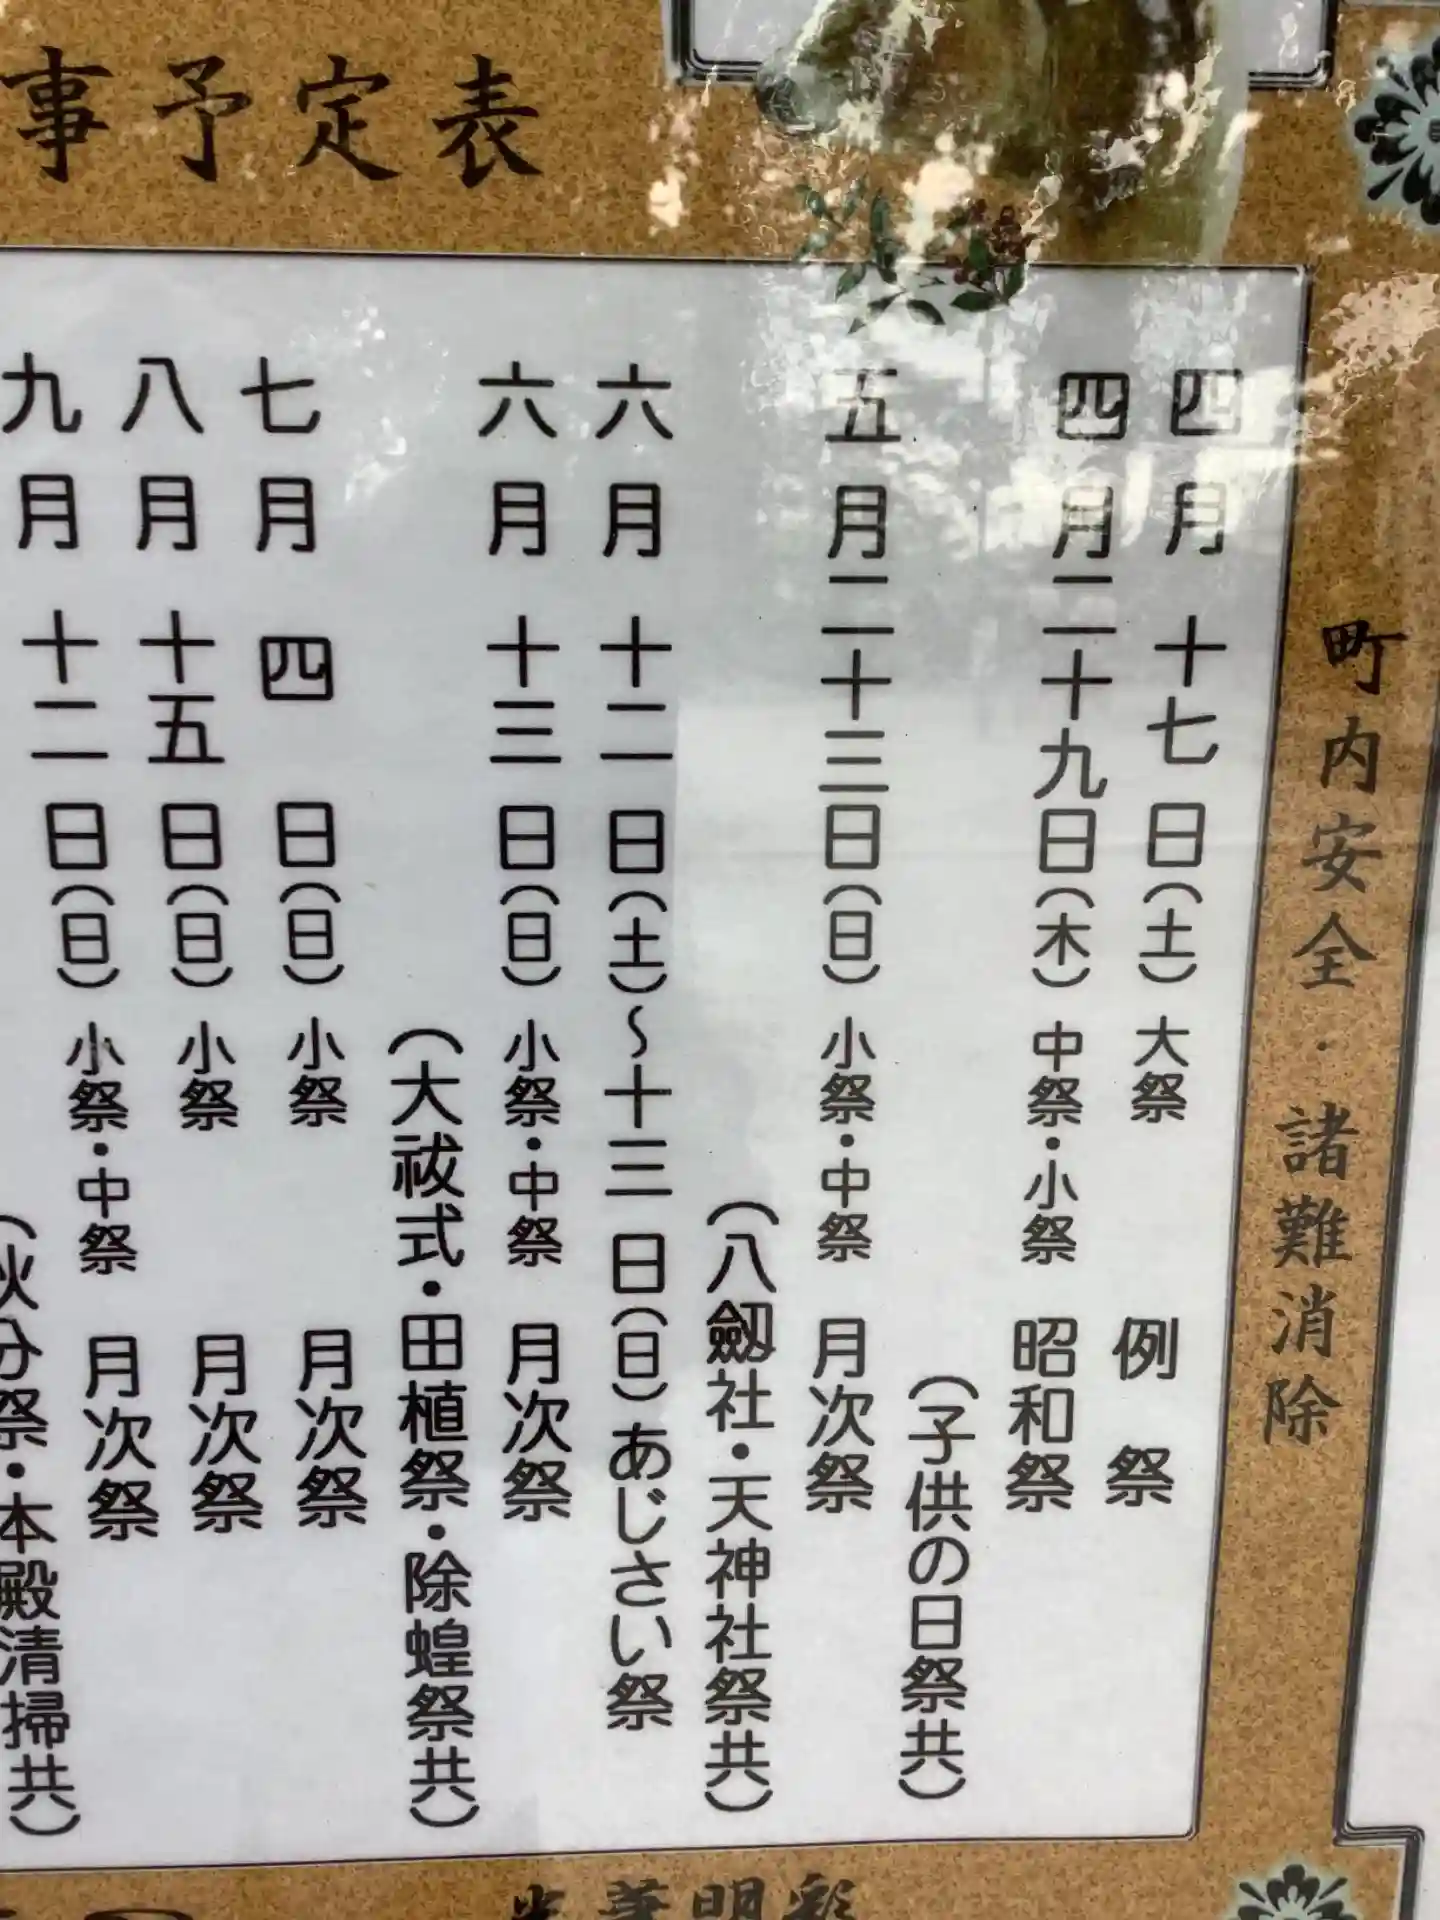 事予定表
町内安全・諸難消除
四月十七日(土) 大祭 例祭
四月二十九日(木) 中祭・小祭 昭和祭
(子供の日祭共)
五月二十三日(日) 小祭・中祭 月次祭
(八劔社・天神社祭共)
六月十二日(土)～十三日(日)あじさい祭
六月十三日(日) 小祭・中祭 月次祭
(大祓式・田植祭・除蝗祭共)
七月四日(日) 小祭 月次祭
八月十五日(日) 小祭 月次祭
九月十二日(日) 小祭・中祭 月次祭
(秋分祭・本殿清掃共)